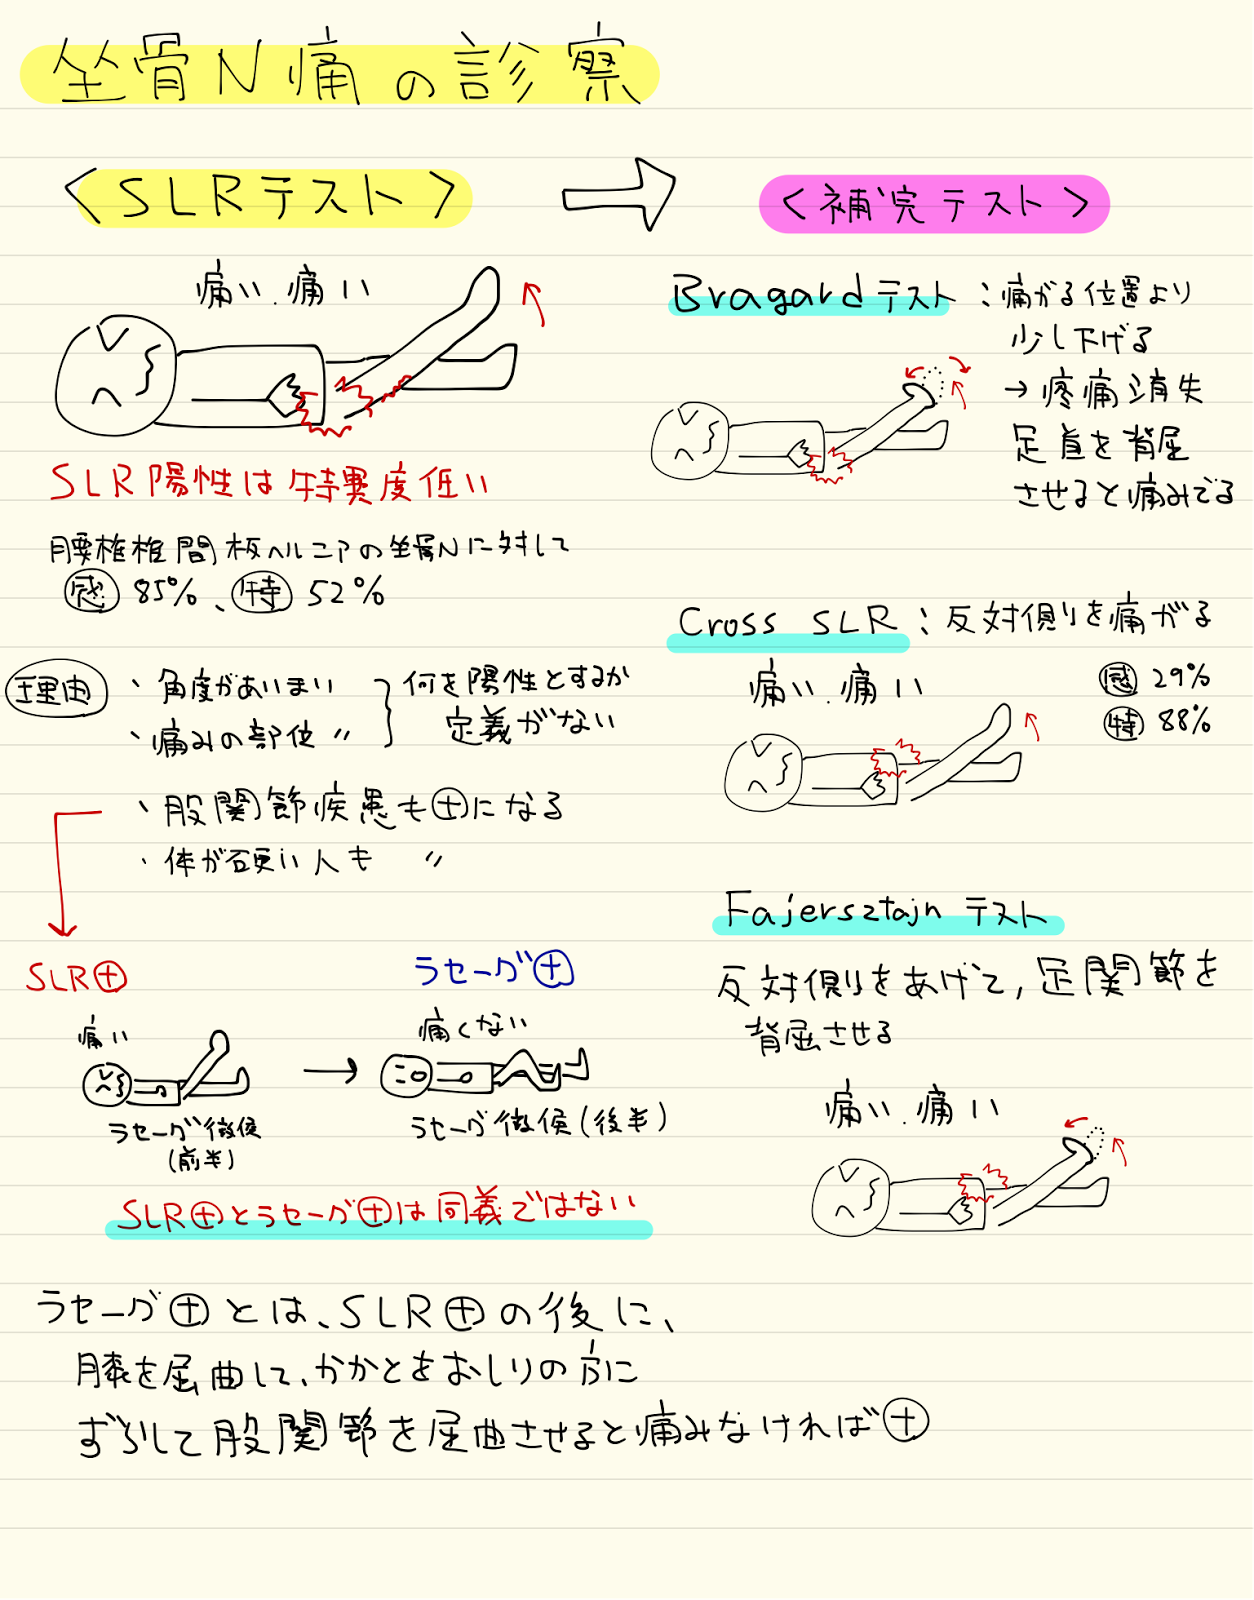 坐骨N痛の診察
<SLRテスト>
痛い.痛い
SLR陽性は特異度低い
腰椎椎間板ヘルニアの坐骨Nに対して
感 85%、特 52%
理由
・角度があいまい
・痛みの部位 〃
何を陽性とするか
定義がない
・股関節疾患も⊕になる
・体が硬い人も 〃
SLR⊕
痛い
ラセーグ徴候
(前半)
→
ラセーグ⊕
痛くない
ラセーグ徴候(後半)
SLR⊕とラセーグ⊕は同義ではない
ラセーグ⊕とは、SLR⊕の後に、
膝を屈曲して、かかとをおしりの方に
ずらして股関節を屈曲させると痛みなければ⊕
<補完テスト>
Bragardテスト:痛がる位置より
少し下げる
→疼痛消失
足首を背屈
させると痛みでる
Cross SLR:反対側を痛がる
痛い.痛い
感 29%
特 88%
Fajersztajnテスト
反対側をあげて,足関節を
背屈させる
痛い.痛い